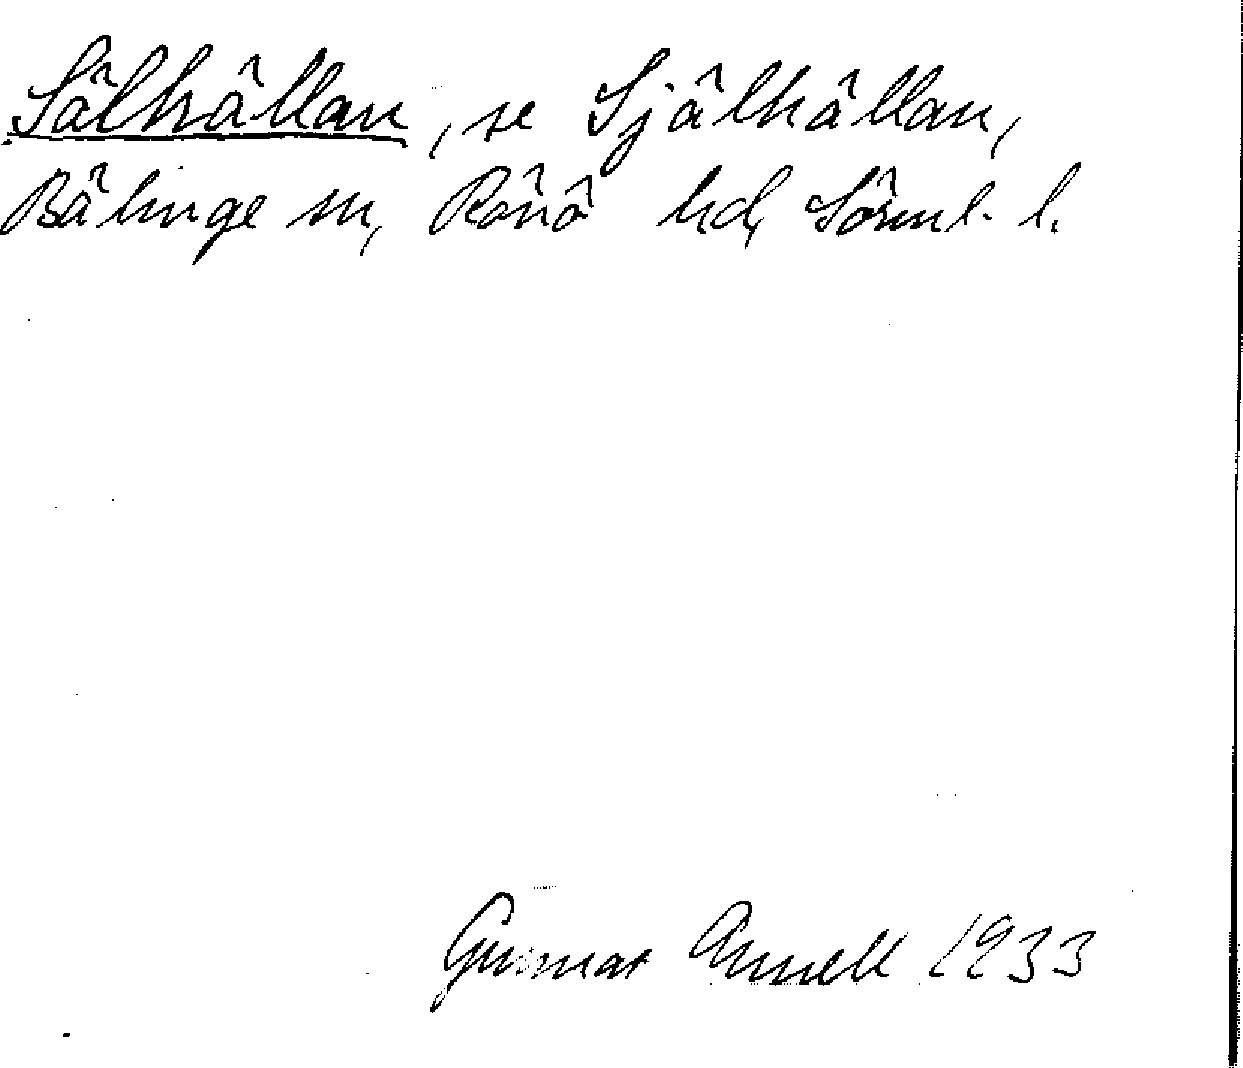 Sälhällan, se Själhällan,
Bälinge sn, Rönö hd, Sörml. l.
Gunnar 1933